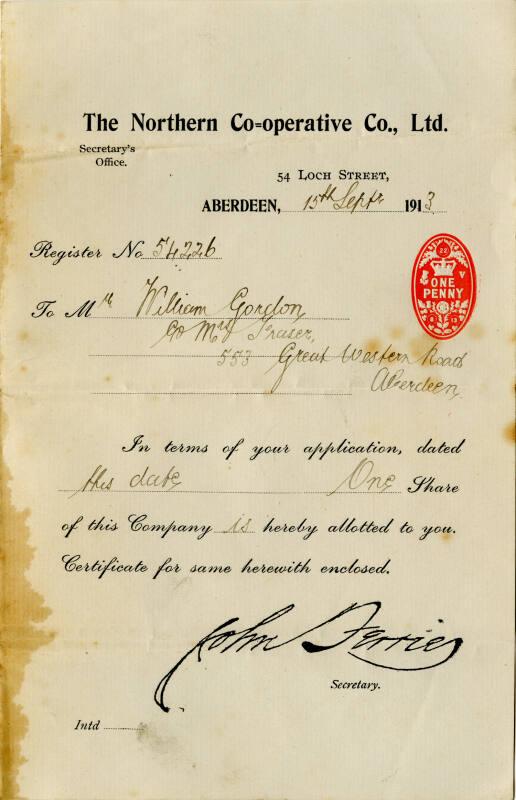 The Northern Co=operative Co., Ltd.
Secretary's
Office.
54 Loch Street,
Aberdeen, 15th Septr 1913
Register No 54226
22
V
ONE
PENNY
To Mr William Gordon
c/o Mrs Fraser,
553 Great Western Road
Aberdeen
In terms of your application, dated
this date One Share
of this Company is hereby allotted to you.
Certificate for same herewith enclosed.
John Ferries
Secretary.
Intd